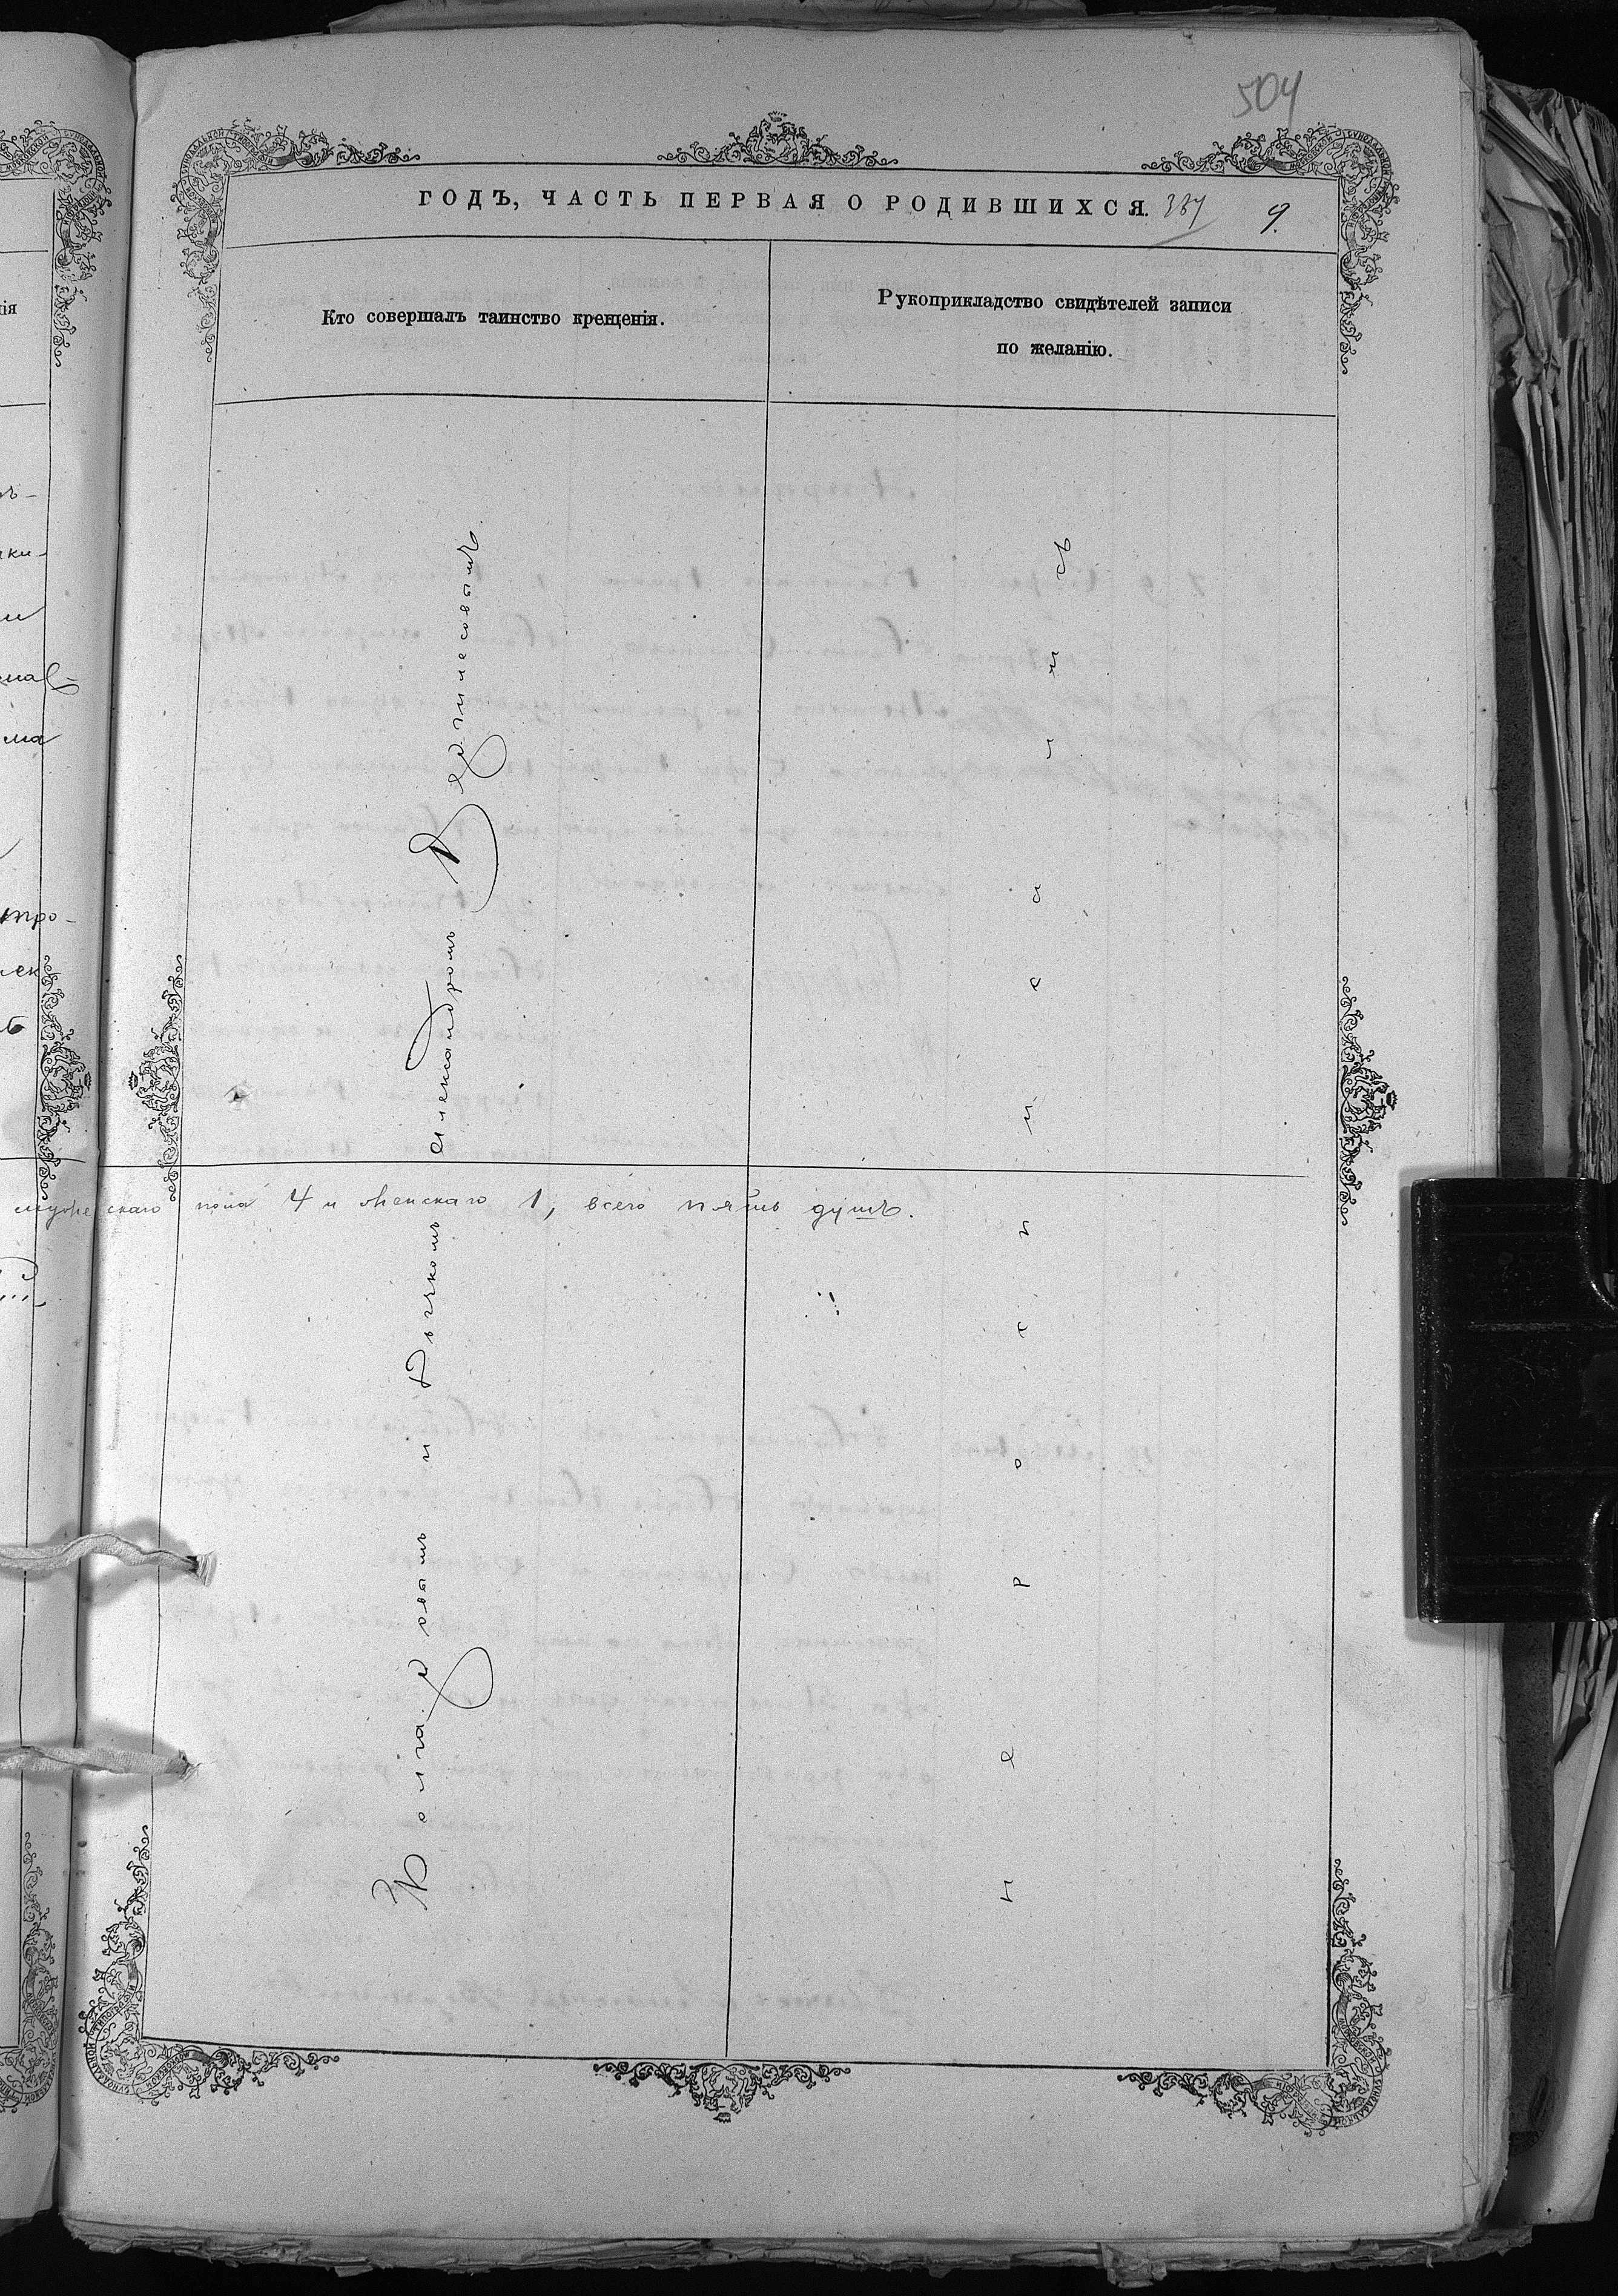 504
ГОДЪ, ЧАСТЬ ПЕРВАЯ О РОДИВШИХСЯ. 337 9.
Кто совершалъ таинство крещенія.
Рукоприкладство свидѣтелей записи
по желанію.
и Дьячкомъ Александромъ
не росписались
мужескаго пола 4 и женскаго 1, всего пять душъ.